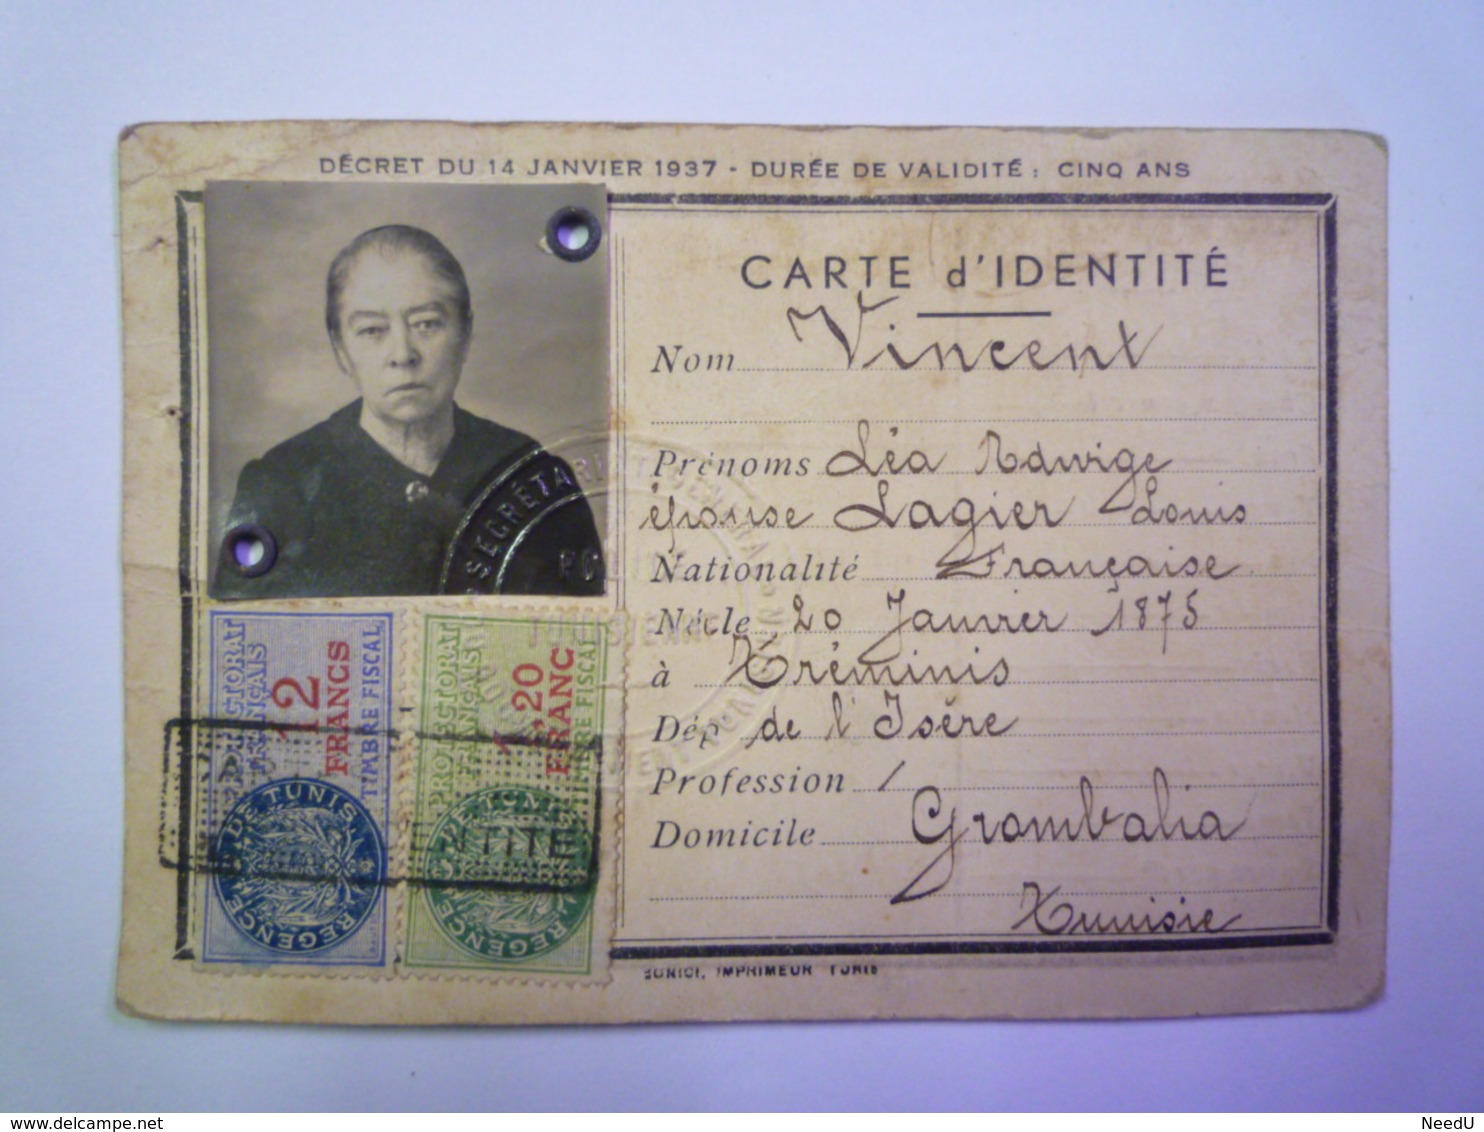 DÉCRET DU 14 JANVIER 1937 - DURÉE DE VALIDITÉ : CINQ ANS
CARTE d'IDENTITÉ
Nom Vincent
Prénoms Léa Edwige
épouse Lagier Louis
Nationalité Française
Né le 20 Janvier 1875
à Tréminis
Dép de l'Isère
Profession /
Domicile Grombalia
Tunisie
IMPRIMEUR TUNIS
PROTECTORAT FRANÇAIS
12 FRANCS
TIMBRE FISCAL
REGENCE DE TUNIS
PROTECTORAT FRANÇAIS
1,20 FRANC
TIMBRE FISCAL
REGENCE DE TUNIS
www.delcampe.net
NeedU